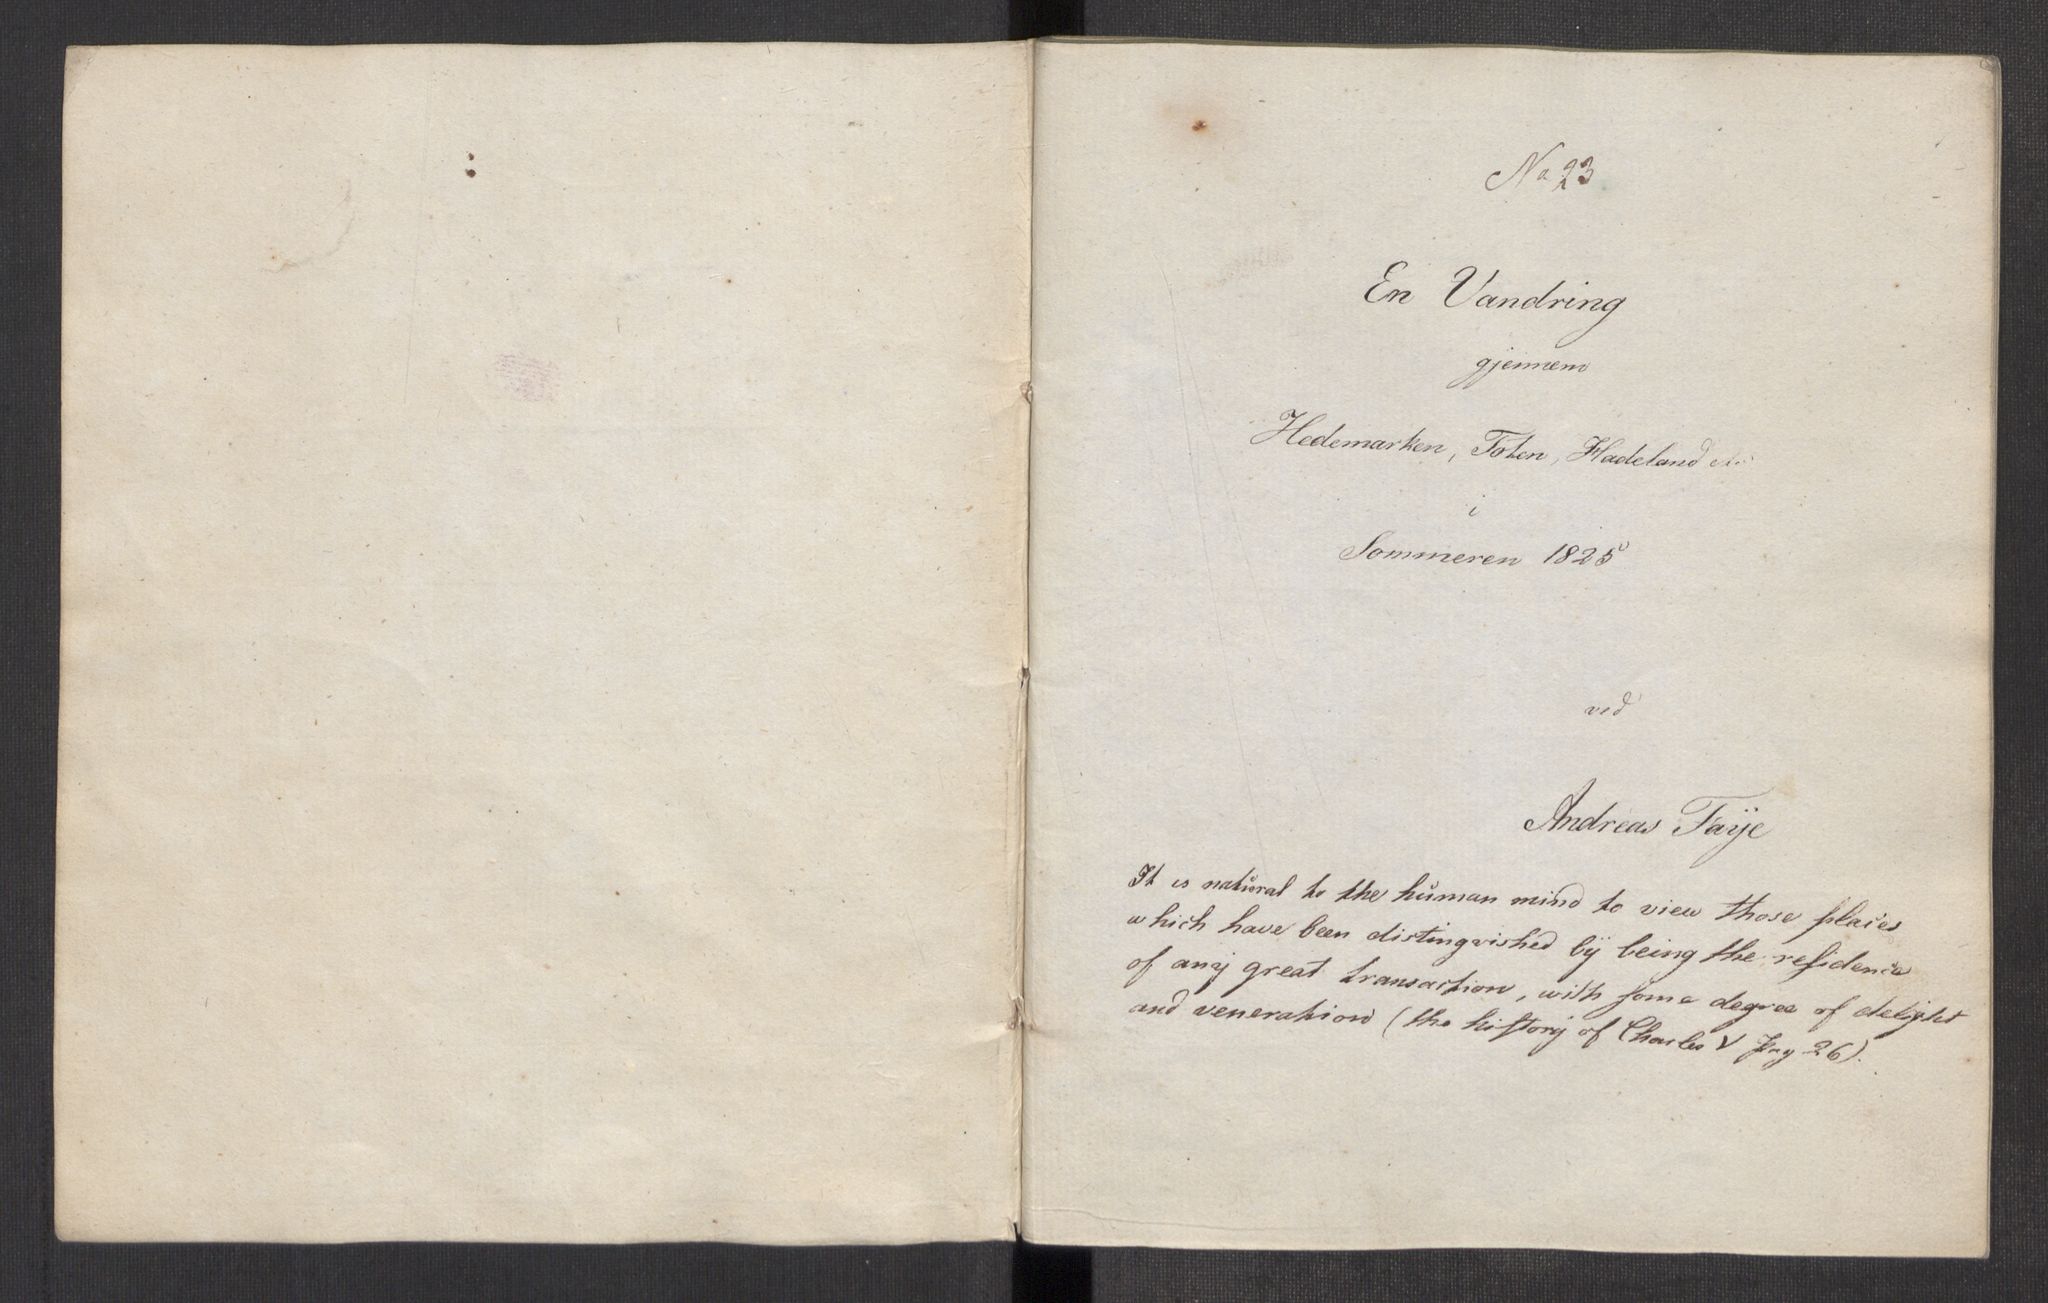 No 23
En Vandring
gjennem
Hedemarken, Toten, Hadeland etc
i
Sommeren 1825
ved
Andreas Faÿe
It is natural to the human mind to view those places
which have been distingvished bÿ being the residence
of anÿ great transaction, with some degree of delight
and veneration (the historÿ of Charles V pag 26).